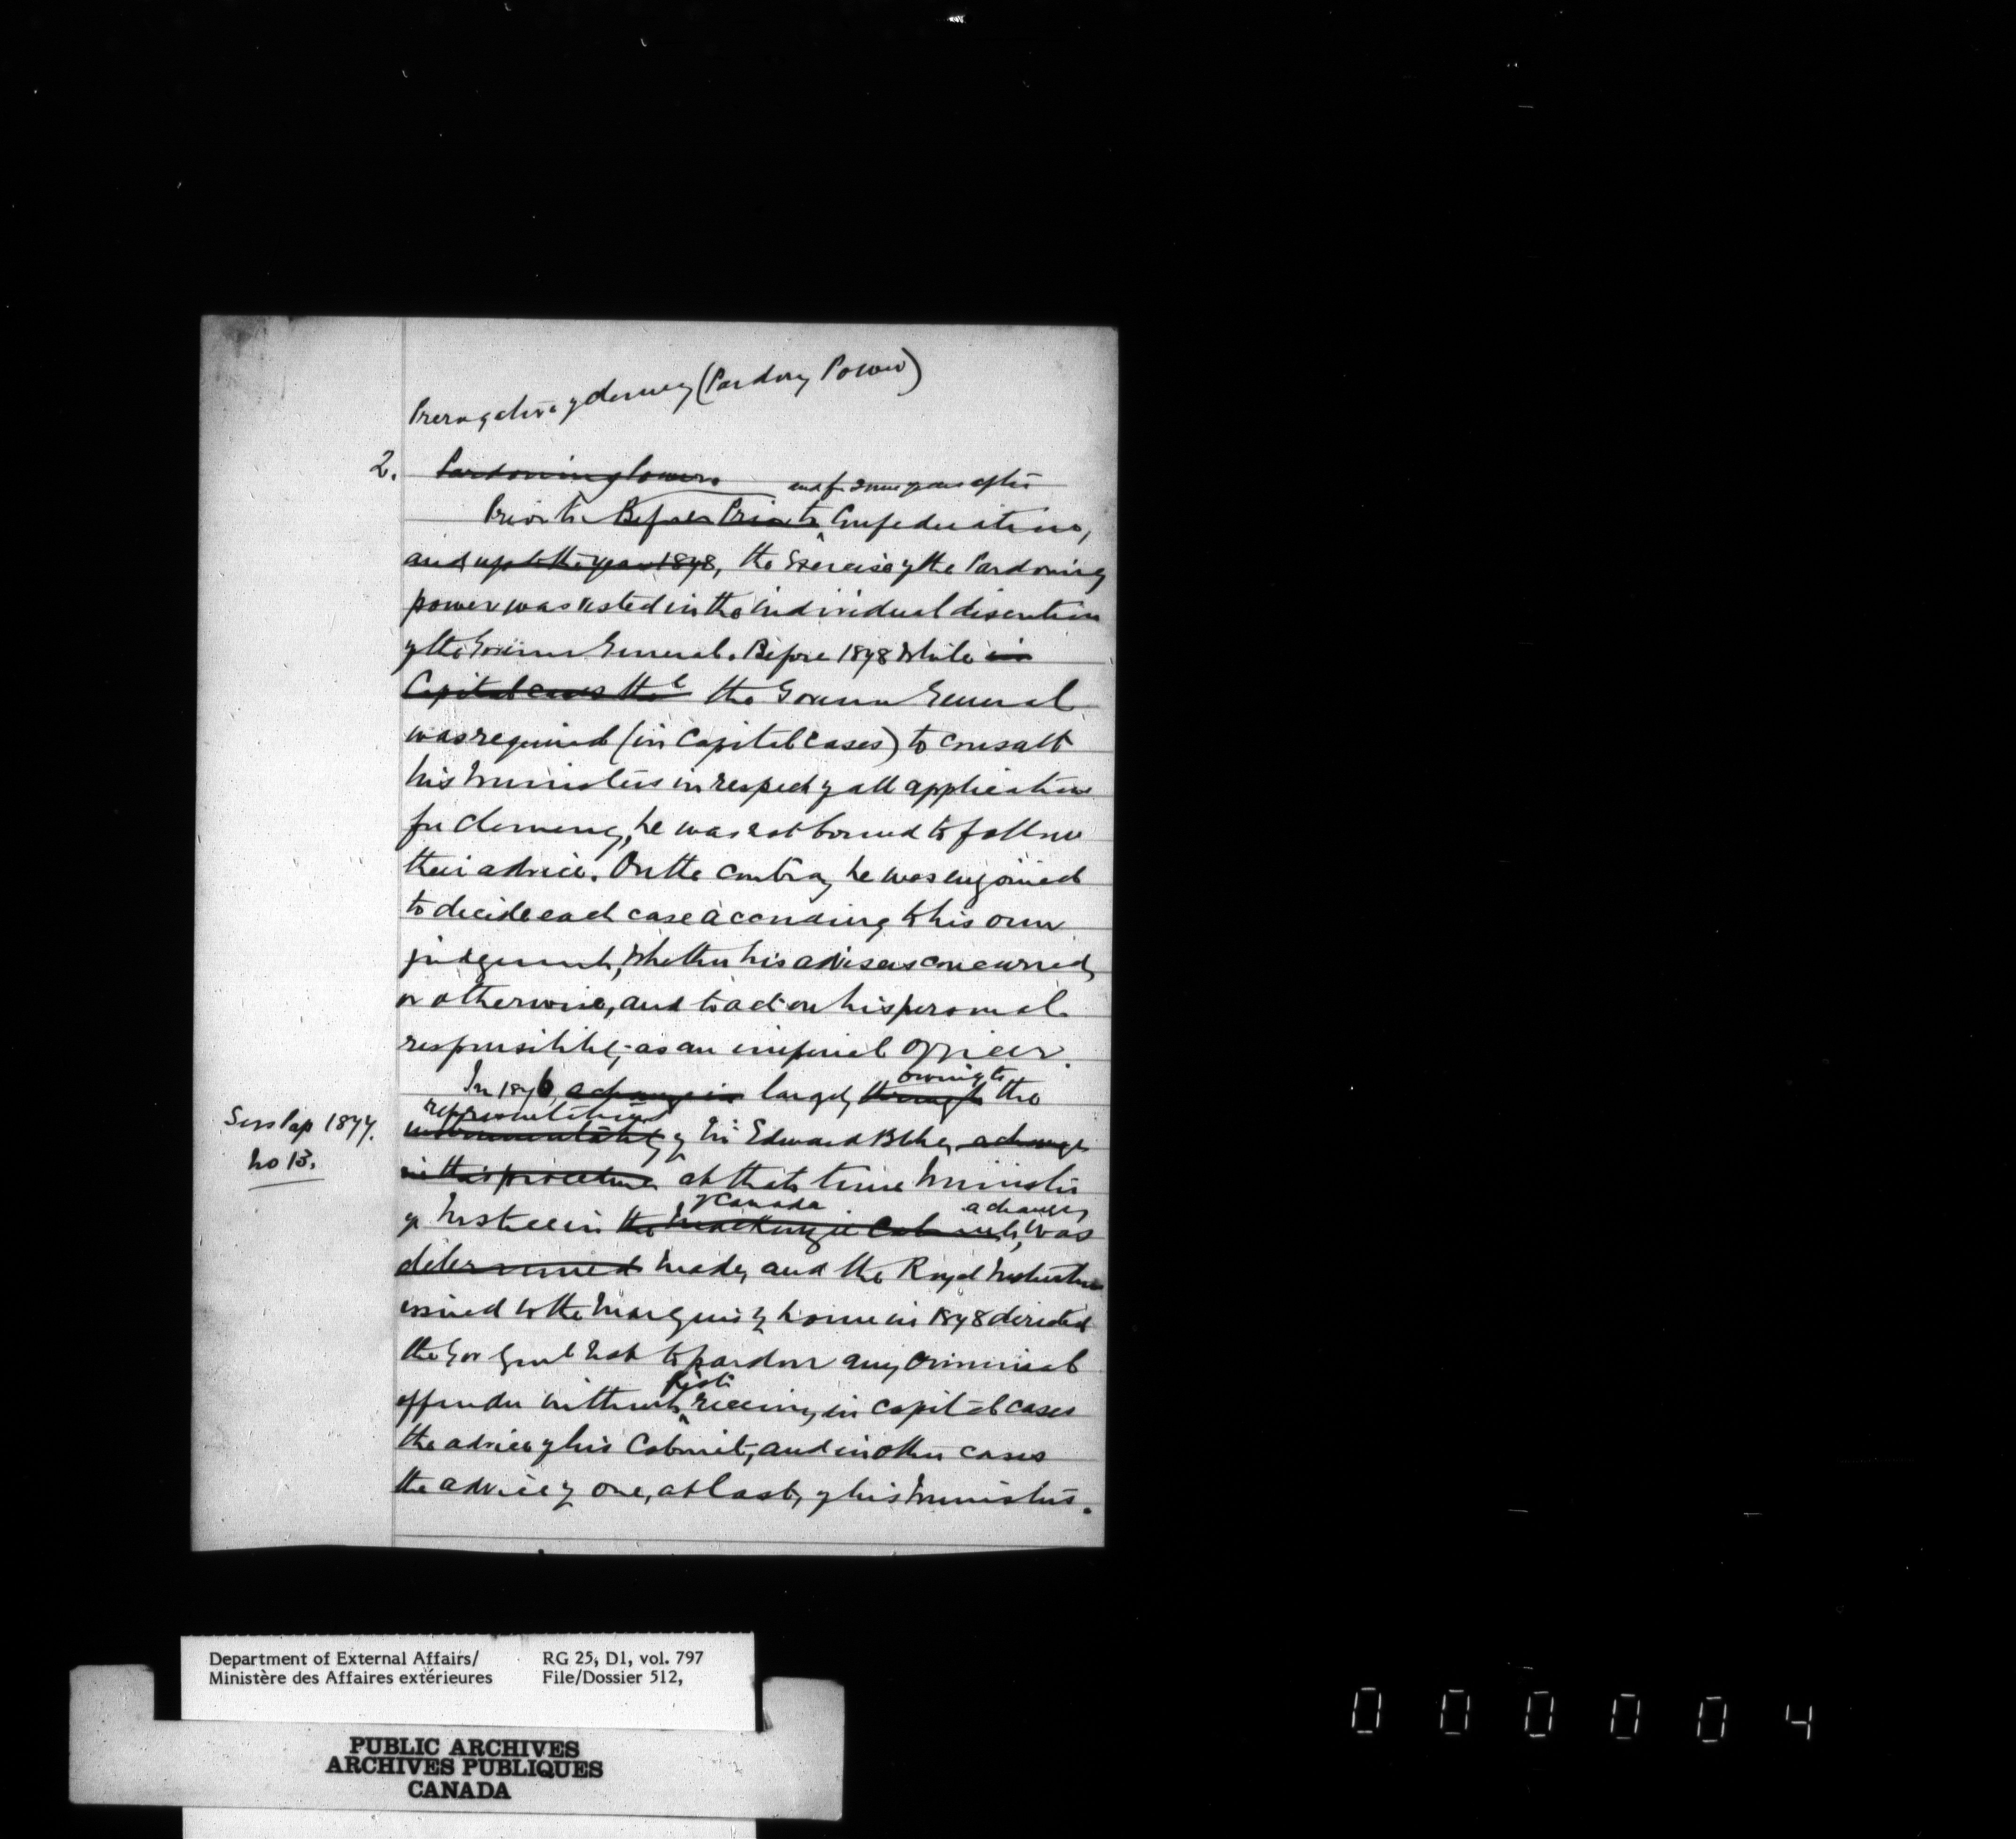 Prerogative of clemency (Pardong Power)
2. Pardoning Powers
and for some years after
Prior to Before Prior to Confederation,
and up to the year 1878, the Exercise of the Pardoning
power was vested in the individual discretion
of the Governor General. Before 1878 while in
Capital cases the the Governor General
was required (in Capital cases) to consult
his Ministers in respect of all applications
for clemency, he was not bound to follow
their advice. On the contrary he was enjoined
to decide each case according to his own
judgement, whether his advisers concurred,
or otherwise, and to act on his personal
responsibility, as an imperial officer.
owing to
In 1876, a change in largely through the
representations
Sess Pap 1877.
No 13.
instrumentality of Mr Edward Blake, a change
in this procedure at that time Minister
of Canada a change
of Justice in the Mackenzie Cabinet, was
determined made, and the Royal Instructions
issued to the Marquis of Lorne in 1878 directed
the Gov Genl not to pardon any criminal
first
offender without receiving, in capital cases
the advice of his Cabinet, and in other cases
the advice of one, at least, of his Ministers.
Department of External Affairs/ RG 25, D1, vol. 797
Ministère des Affaires extérieures File/Dossier 512,
PUBLIC ARCHIVES
ARCHIVES PUBLIQUES
CANADA
000004